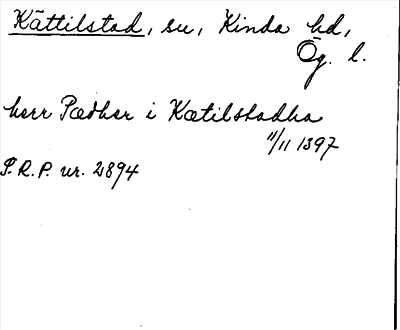 Kättilstad, sn, Kinda hd,
Ög. l.
herr Pædher i Kætilstadha
11/11 1397
S.R.P. nr. 2894